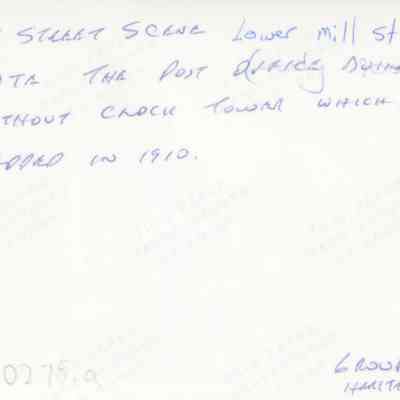 STREET SCENE Lower Mill St
THE POST OFFICE
WITHOUT CLOCK TOWER WHICH
ADDED IN 1910.
0275.a
GROW
HARIT